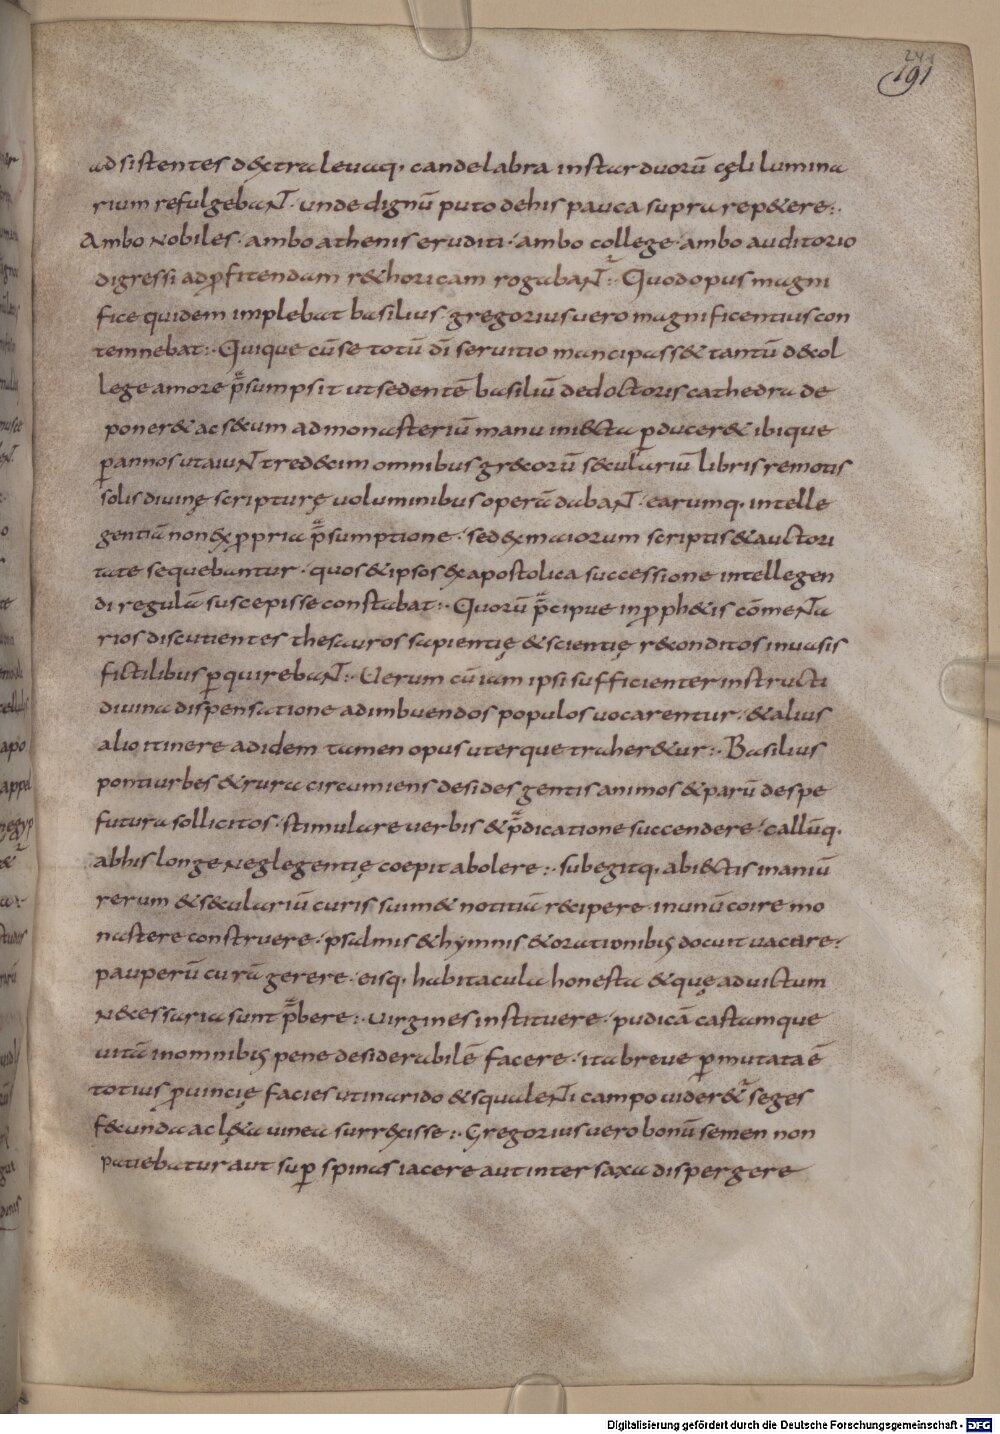 241
191
adsistentes d&xtraleuaq· candelabra instar duorū cęli lumina
rium refulgebaNT· unde dignū puto dehis pauca supra rep&ere:·
Ambo Nobiles· ambo athenis eruditi· ambo college· ambo auditorio
digressi adꝓfitendam r&horicam rogabaNT:· Quodopus magni
fice quidem implebat basilius gregoriusuero magnificentius con
temnebat:· Quique cūse totū dī seruitio mancipass& tantū d&col
lege amore p̄sumpsit utsedentē basiliū dedoctoris cathedra de
poner& ac s&cum admonasteriū manu ini&cta ꝓducer& ibique
ꝑ annos utaiuNT tred&cim omnibus gr&corū s&culariū libris remotis
solis diuinę scripturę uoluminibus operā dabaNT· earumq· intelle
gentiā non&x ꝓpria p̄sumptione· sed&xmaiorum scriptis&auctori
tate sequebantur· quos&ipsos &xapostolica successione intellegen
di regulā suscepisse constabat:· Quorū p̄cipue in ꝓph&is cōmeNta
rios discutientes thesauros sapientię &scientię r&conditos inuasis
fictilibus ꝑquirebaNT:· Uerum cū iam ipsi sufficienter instructi
diuina dispensatione adimbuendos populos uocarentur· &alius
alio itinere adidem tamen opus uterque traher&ur:· Basilius
ponti urbes &rura circumiens desides gentis animos &parū despe
futura sollicitos· stimulare uerbis &p̄dicatione succendere· callūq·
abhis longe Neglegentię coepit abolere:· subegitq· abi&ctis inaniū
rerum &s&culariū curis suim& notitiā r&cipere· inunū coire mo
nastere construere· psalmis &hymnis &orationibꝫ docuit uacare·
pauperū curā gerere· eisq· habitacula honesta &quę aduictum
N&cessaria sunt p̄bere:· uirgines instituere· pudicā castamque
uitā inomnibꝫ pene desiderabilē facere· ita breue ꝑmutata ē
totius ꝓuincię facies utinarido &squaleNTi campo uider&ur seges
f&cunda ac l&a uinea surr&xisse:· Gregoriusuero bonū semen non
patiebatur aut suꝑ spinas iacere aut inter saxa dispergere
Digitalisierung gefördert durch die Deutsche Forschungsgemeinschaft - DFG